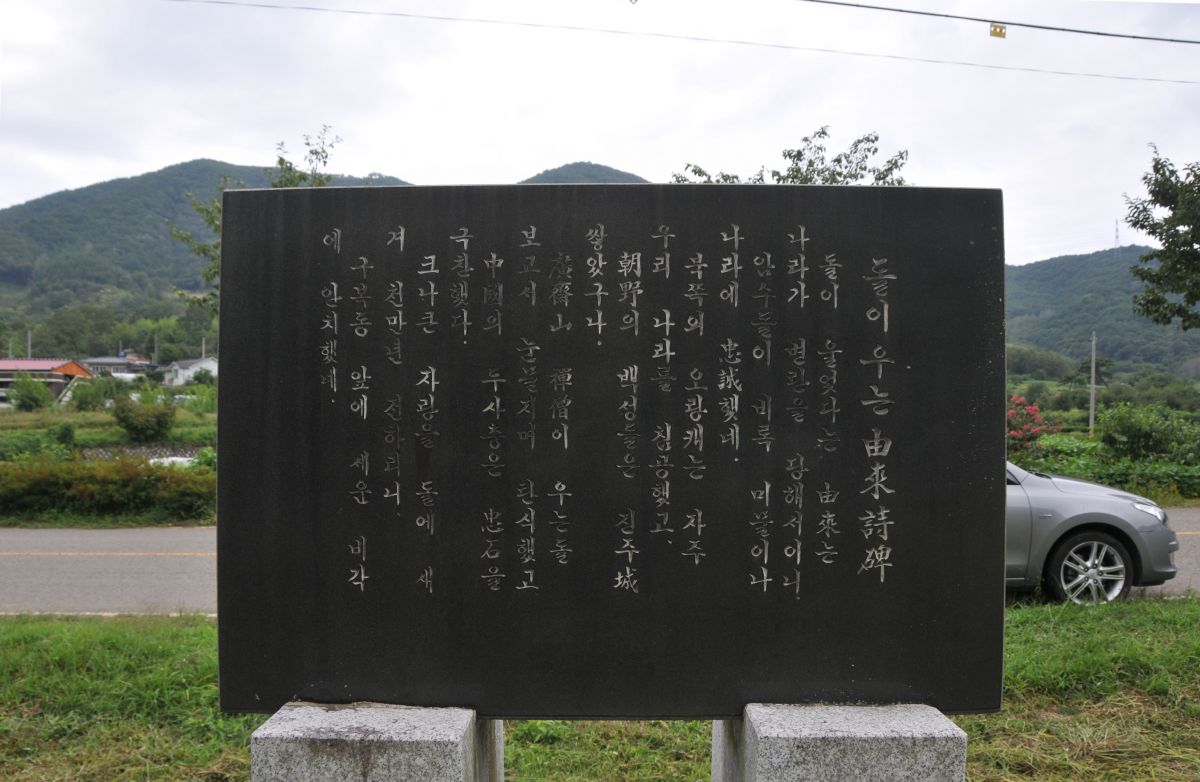 돌이 우는 由來詩碑
돌이 울었다는 由來는
나라가 변란을 당해서이니
암수돌이 비록 미물이나
나라에 忠誠했네.
북쪽의 오랑캐는 자주
우리 나라를 침공했고,
朝野의 백성들은 진주城
쌓았구나.
廣濟山 禪僧이 우는돌
보고서 눈물지며 탄식했고
中國의 두사충은 忠石을
극찬했다.
크나큰 자랑을 돌에 새
겨 천만년 전하리니
구복동 앞에 세운 비각
에 안치했네.